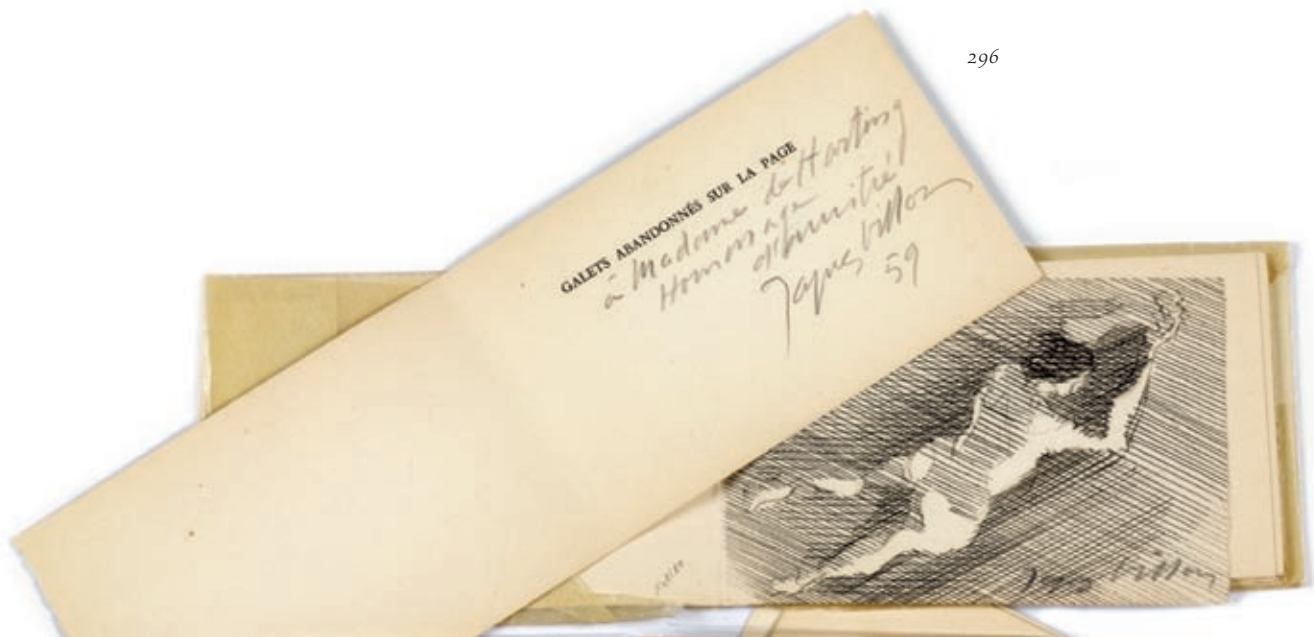 296
GALETS ABANDONNÉS SUR LA PAGE
à Madame de Harting
Hommage
d'amitié
Jacques Villon
59
Jacques Villon